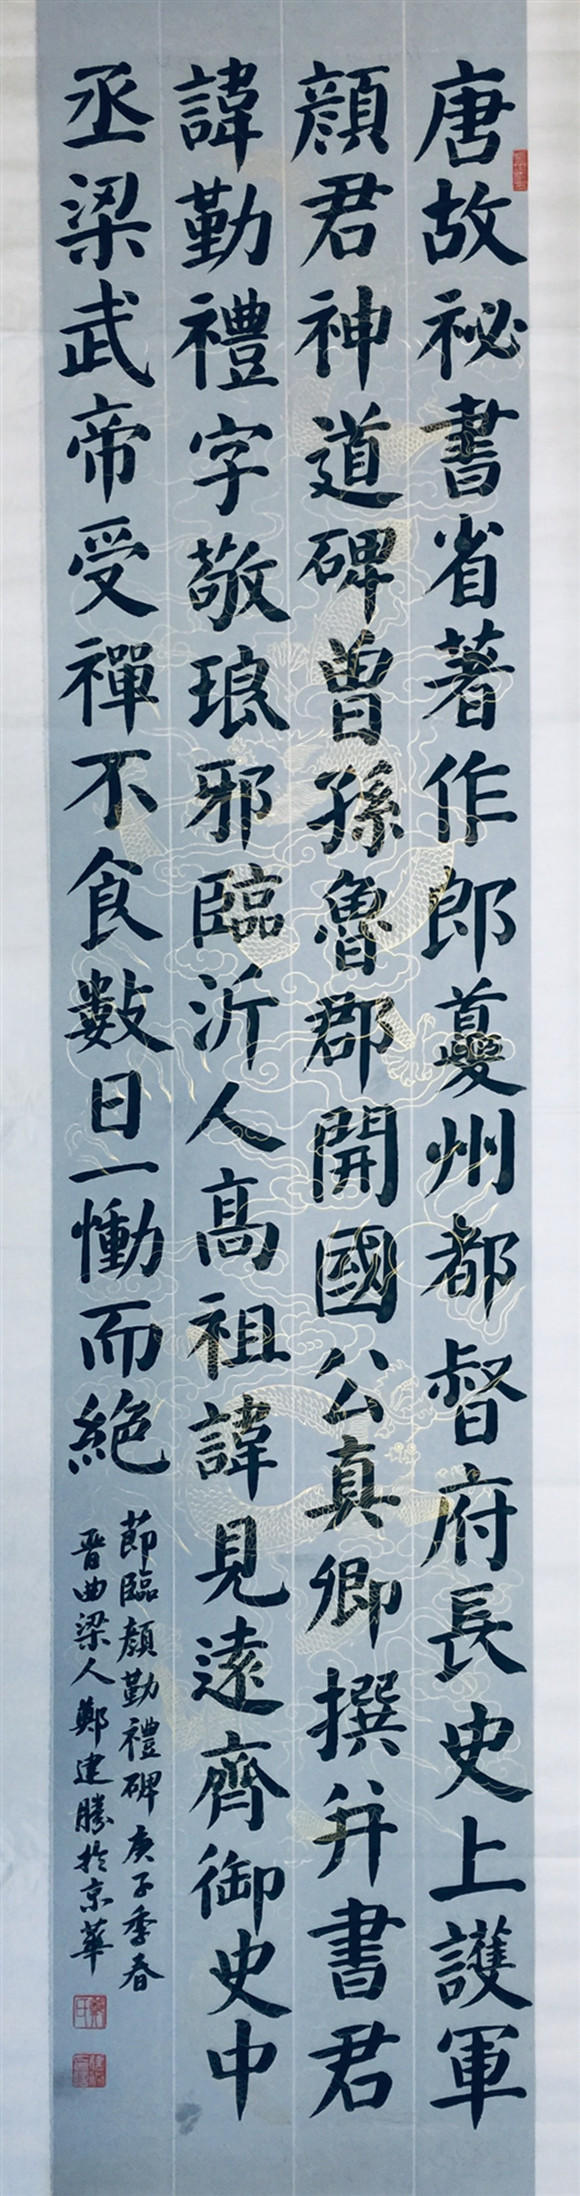 唐故祕書省著作郎夔州都督府長史上護軍
顏君神道碑曾孫魯郡開國公真卿撰并書君
諱勤禮字敬琅邪臨沂人高祖諱見遠齊御史中
丞梁武帝受禪不食數日一慟而絕
節臨顏勤禮碑庚子季春
晉曲梁人鄭建勝於京華